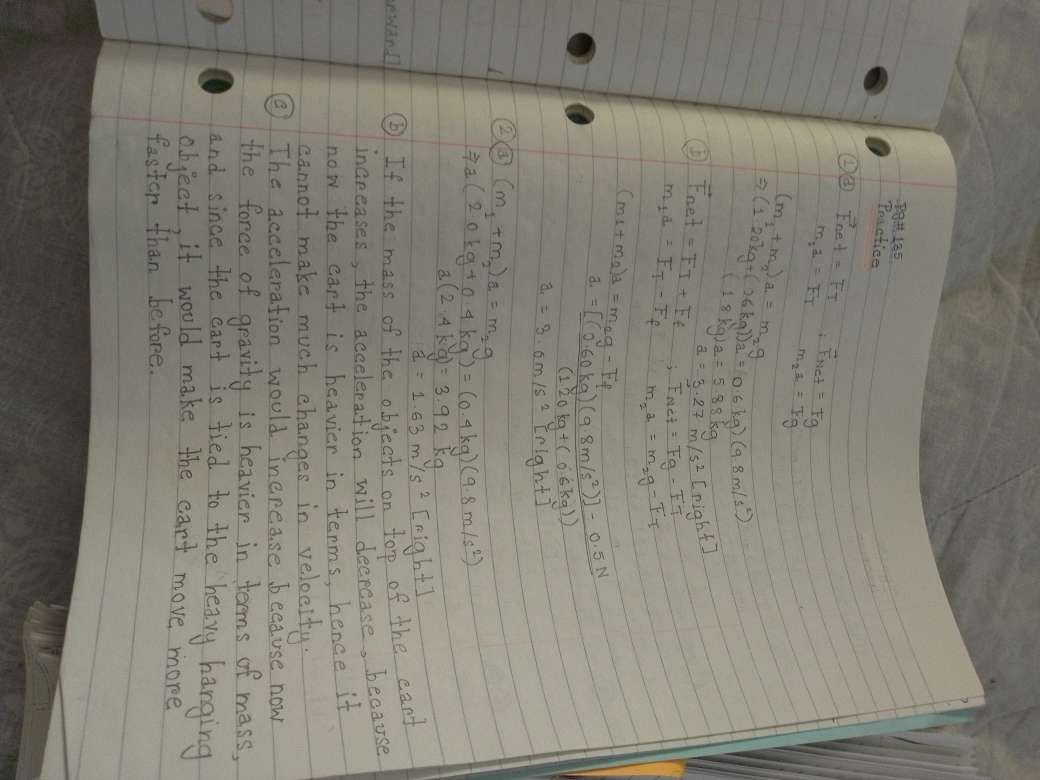 Pg# 135
Practice
1) a) F⃗net = FT ; F⃗Net = Fg
m₁a = FT m₂a = Fg
(m₁ + m₂)a = m₂g
⇒ (1.20kg+(0.6kg))a = 0.6kg)(9.8m/s²)
(1.8kg)a = 5.88kg
a = 3.27 m/s² [right]
b) F⃗net = FT + Ff ; F⃗Net = Fg - FT
m₁a = FT - Ff m₂a = m₂g - FT
(m₁ + m₂)a = m₂g - Ff
a = [(0.60kg)(9.8m/s²)] - 0.5N
(1.20kg+(0.6kg))
a = 3.0m/s² [right]
2. a) (m₁+m₂)a = m₂g
⇒ a(2.0kg+0.4kg) = (0.4kg)(9.8m/s²)
a(2.4kg) = 3.92kg
a = 1.63 m/s² [right]
b) If the mass of the objects on top of the cart
increases, the acceleration will decrease, because
now the cart is heavier in terms, hence it
cannot make much changes in velocity.
c) The acceleration would increase because now
the force of gravity is heavier in terms of mass,
and since the cart is tied to the heavy hanging
object, it would make the cart move more
faster than before.